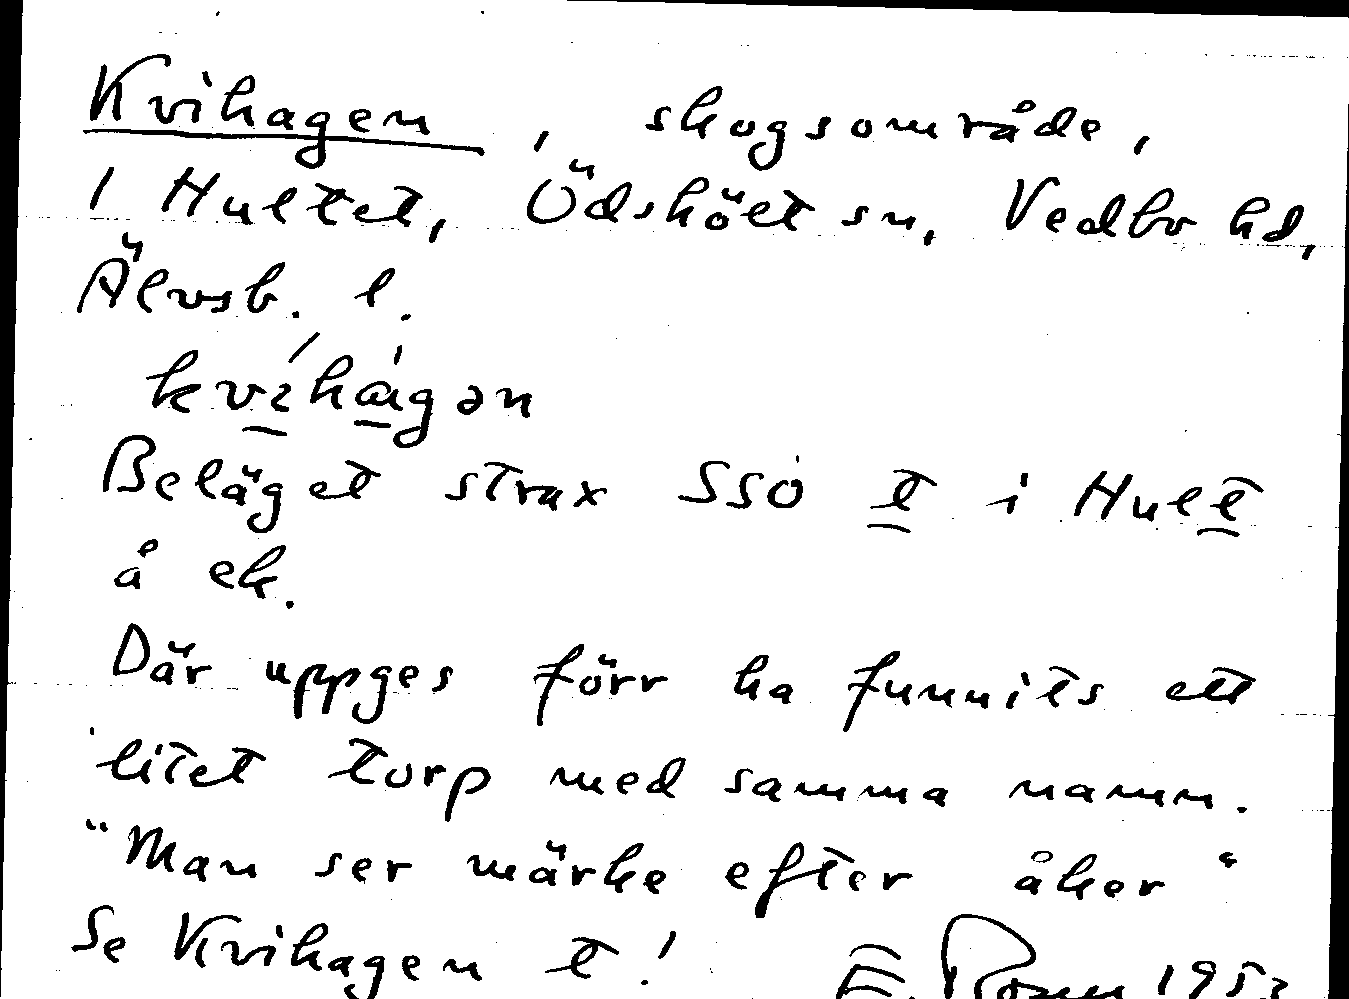 Kvihagen, skogsområde,
1 Hultet, Ödskölt sn, Vedbo hd,
Älvsb. l.
kvíhàgən
Beläget strax SSÖ t i Hult
å ek.
Där uppges förr ha funnits ett
litet torp med samma namn.
"Man ser märke efter åker"
Se Kvihagen t! E.